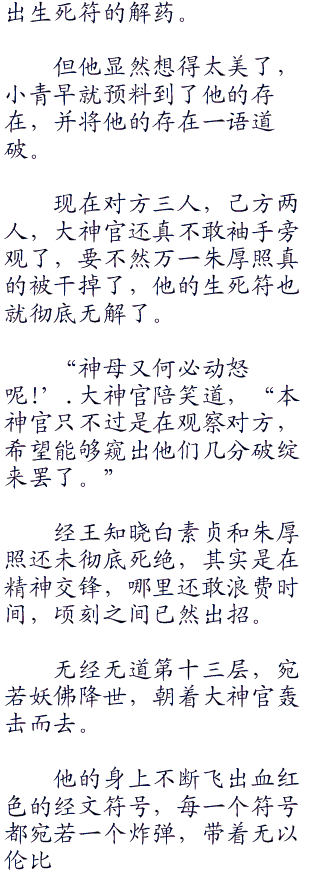 出生死符的解药。
但他显然想得太美了，
小青早就预料到了他的存
在，并将他的存在一语道
破。
现在对方三人，己方两
人，大神官还真不敢袖手旁
观了，要不然万一朱厚照真
的被干掉了，他的生死符也
就彻底无解了。
“神母又何必动怒
呢!’.大神官陪笑道，“本
神官只不过是在观察对方，
希望能够窥出他们几分破绽
来罢了。”
经王知晓白素贞和朱厚
照还未彻底死绝，其实是在
精神交锋，哪里还敢浪费时
间，顷刻之间已然出招。
无经无道第十三层，宛
若妖佛降世，朝着大神官轰
击而去。
他的身上不断飞出血红
色的经文符号，每一个符号
都宛若一个炸弹，带着无以
伦比